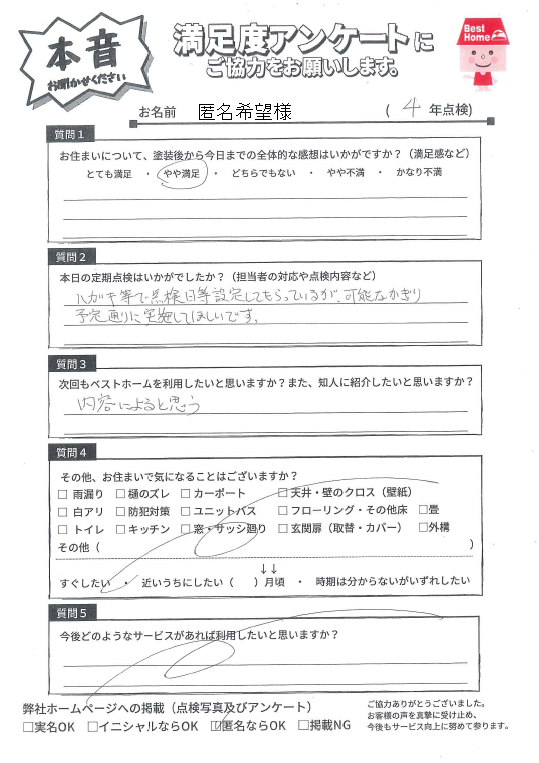 本音
お聞かせください
満足度アンケートに
ご協力をお願いします。
Best
Home
お名前 匿名希望様 ( 4 年点検)
質問1
お住まいについて、塗装後から今日までの全体的な感想はいかがですか？（満足感など）
とても満足 ・ やや満足 ・ どちらでもない ・ やや不満 ・ かなり不満
質問2
本日の定期点検はいかがでしたか？（担当者の対応や点検内容など）
ハガキ等で点検日等設定してもらっているが、可能なかぎり
予定通りに実施してほしいです。
質問3
次回もベストホームを利用したいと思いますか？また、知人に紹介したいと思いますか？
内容によると思う
質問4
その他、お住まいで気になることはございますか？
□ 雨漏り □ 樋のズレ □ カーポート □ 天井・壁のクロス（壁紙）
□ 白アリ □ 防犯対策 □ ユニットバス □ フローリング・その他床 □畳
□ トイレ □ キッチン □ 窓・サッシ廻り □ 玄関扉（取替・カバー） □外構
その他（ ）
↓↓
すぐしたい ・ 近いうちにしたい（ ）月頃 ・ 時期は分からないがいずれしたい
質問5
今後どのようなサービスがあれば利用したいと思いますか？
弊社ホームページへの掲載（点検写真及びアンケート）
□実名OK □イニシャルならOK ☑匿名ならOK □掲載NG
ご協力ありがとうございました。
お客様の声を真摯に受け止め、
今後もサービス向上に努めて参ります。